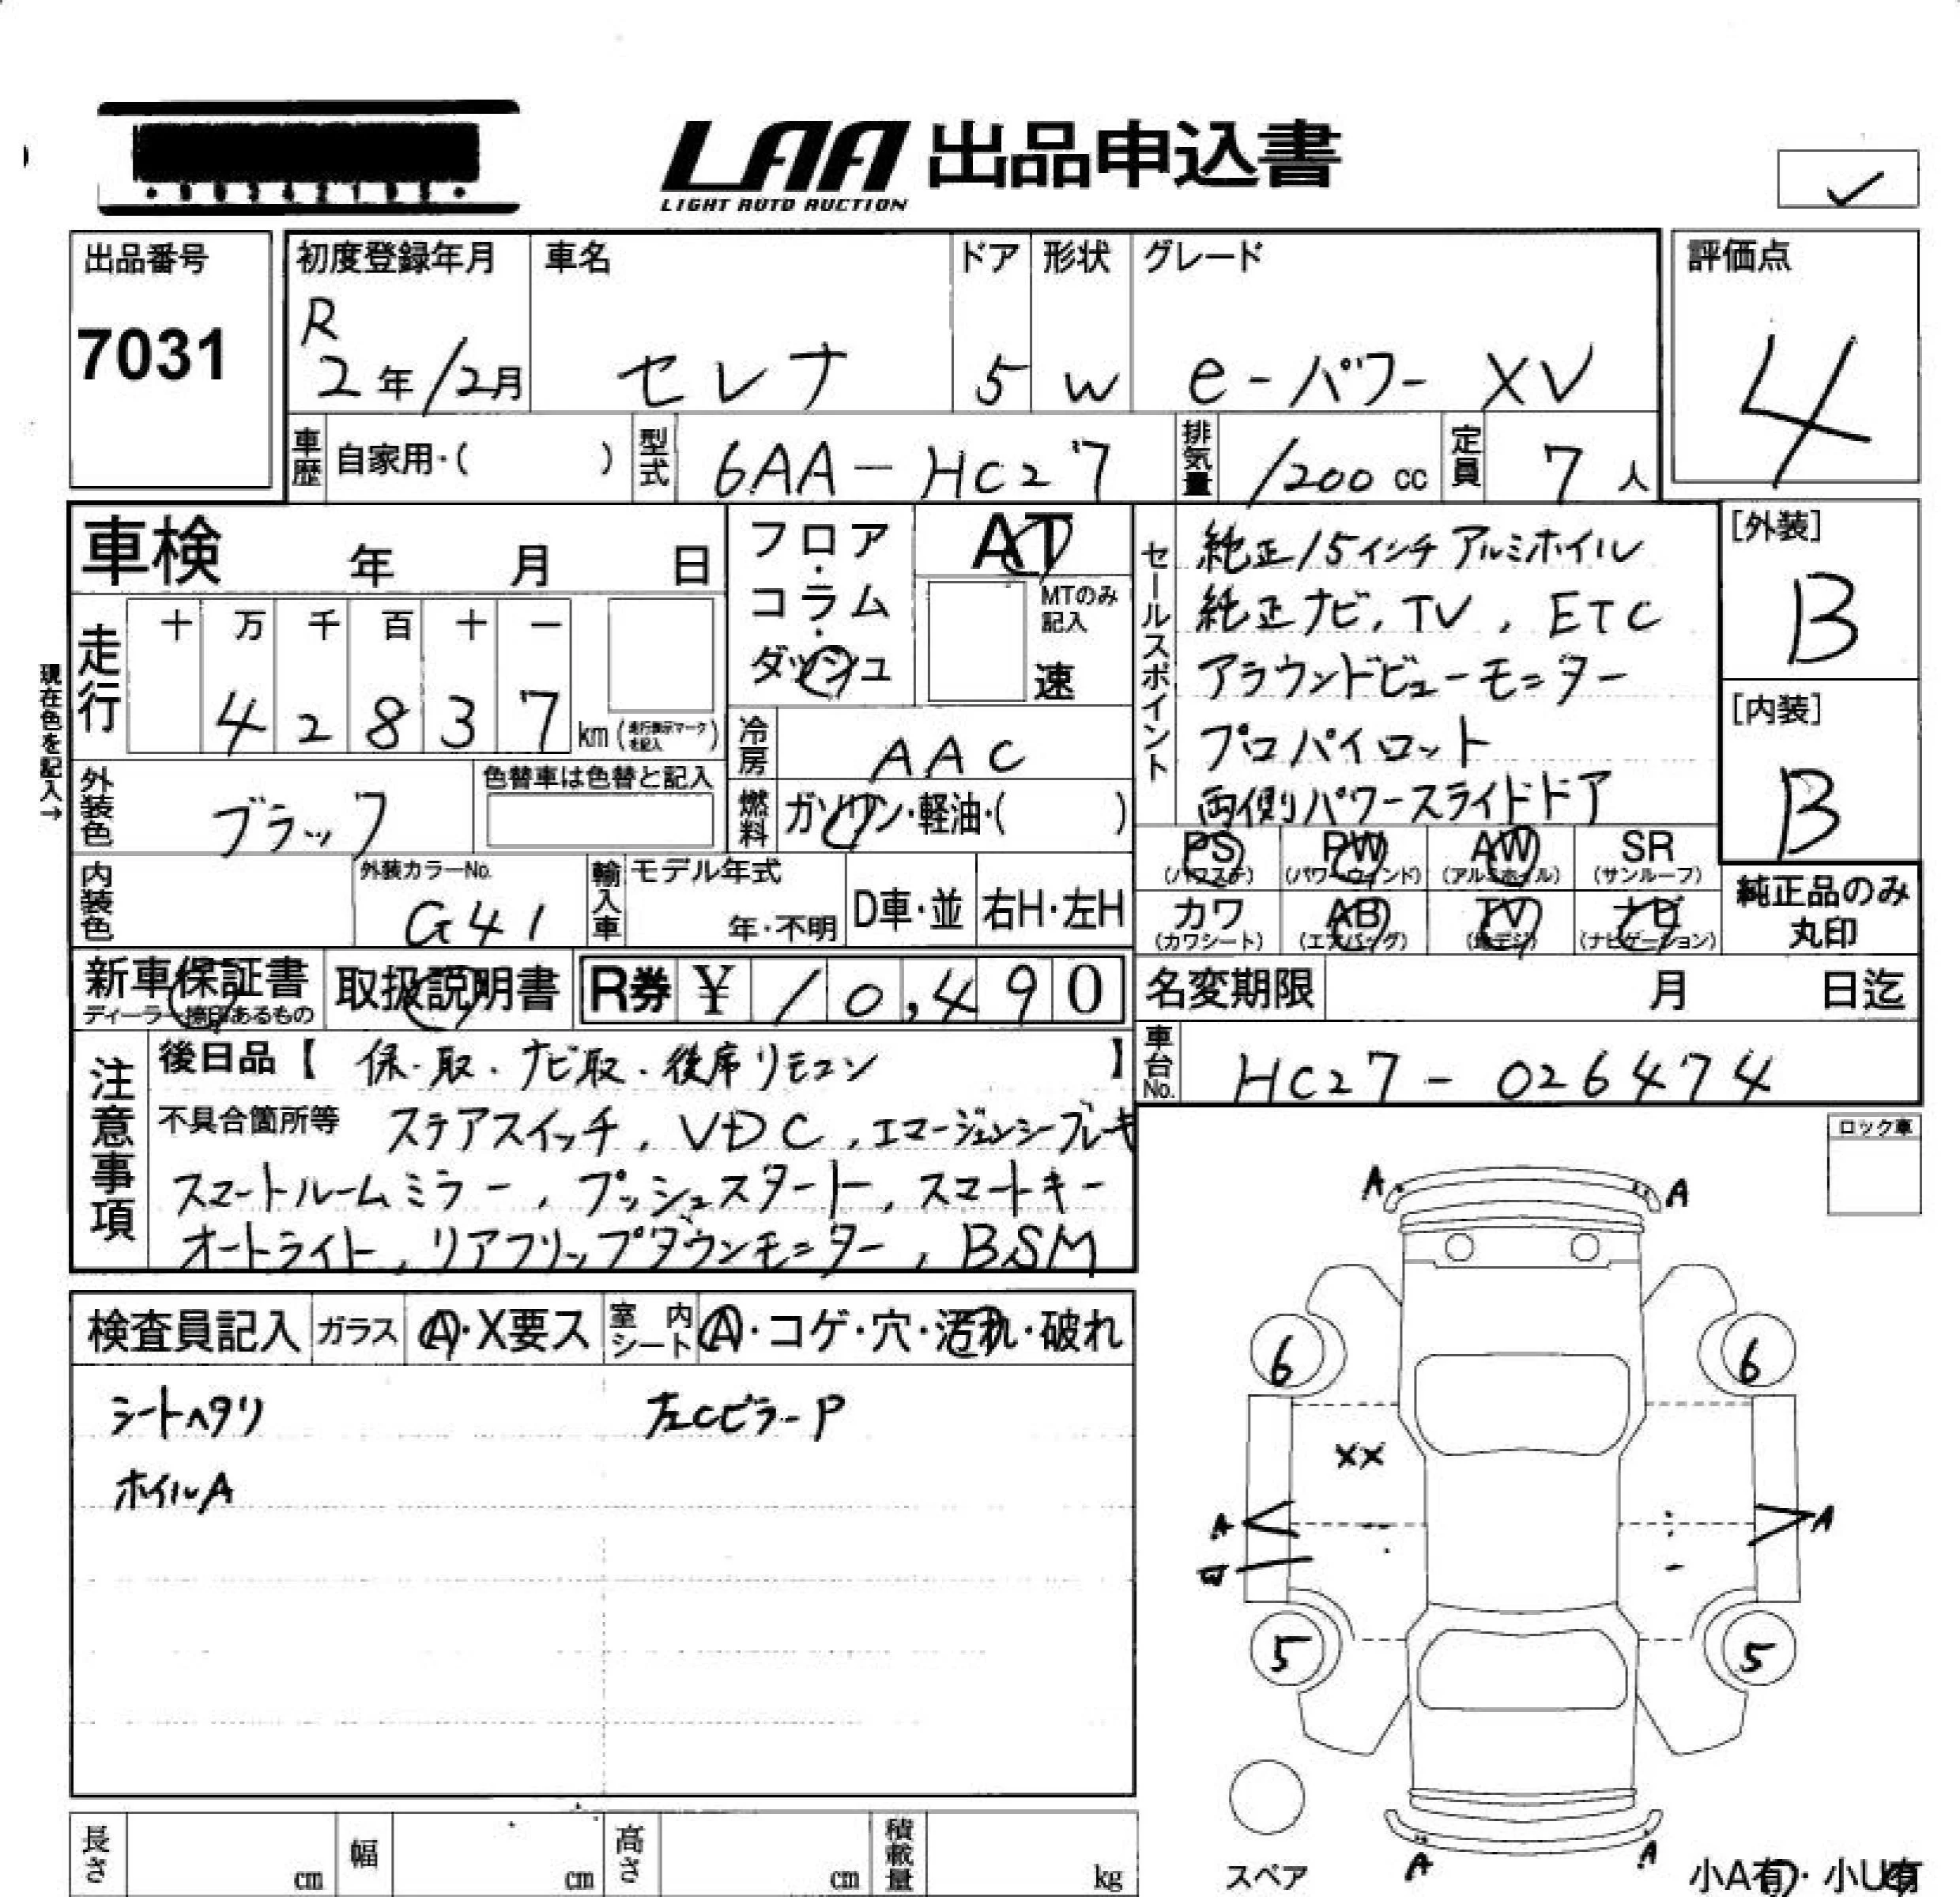 LAA 出品申込書
LIGHT AUTO AUCTION
出品番号
7031
初度登録年月
R
2年/2月
車名
セレナ
ドア
5
形状
W
グレード
e-パワー XV
評価点
4
車歴 自家用・( )
型式 6AA-HC27
排気量 1200 cc
定員 7 人
車検 年 月 日
フロア・コラム・ダッシュ
AT
MTのみ記入
速
走行
十 万 千 百 十 一
4 2 8 3 7 km (走行表示マークを記入)
現在色を記入→
外装色 ブラック
色替車は色替と記入
冷房 AAC
燃料 ガソリン・軽油・( )
内装色
外装カラーNo.
G41
輸入車 モデル年式
年・不明
D車・並 右H・左H
セールスポイント
純正15インチアルミホイル
純正ナビ, TV, ETC
アラウンドビューモニター
プロパイロット
両側パワースライドドア
[外装]
B
[内装]
B
PS (パワステ) PW (パワーウィンド) AW (アルミホイル) SR (サンルーフ)
カワ (カワシート) AB (エアバッグ) TV (地デジ) ナビ (ナビゲーション)
純正品のみ丸印
新車保証書
ディーラー捺印あるもの
取扱説明書
R券 ¥ 10,490
名変期限 月 日迄
車台No. HC27-026474
注意事項
後日品【 保・取・ナビ取・後席リモコン 】
不具合箇所等 ステアスイッチ, VDC, エマージェンシーブレーキ
スマートルームミラー, プッシュスタート, スマートキー
オートライト, リアフリップダウンモニター, BSM
ロック車
検査員記入 ガラス A・X要ス 室内シート A・コゲ・穴・汚れ・破れ
シートヘタリ 左CピラーP
ホイルA
A A
6 6
XX
A A
W
5 5
A A
スペア
小A有・小U有
長さ cm 幅 cm 高さ cm 積載量 kg